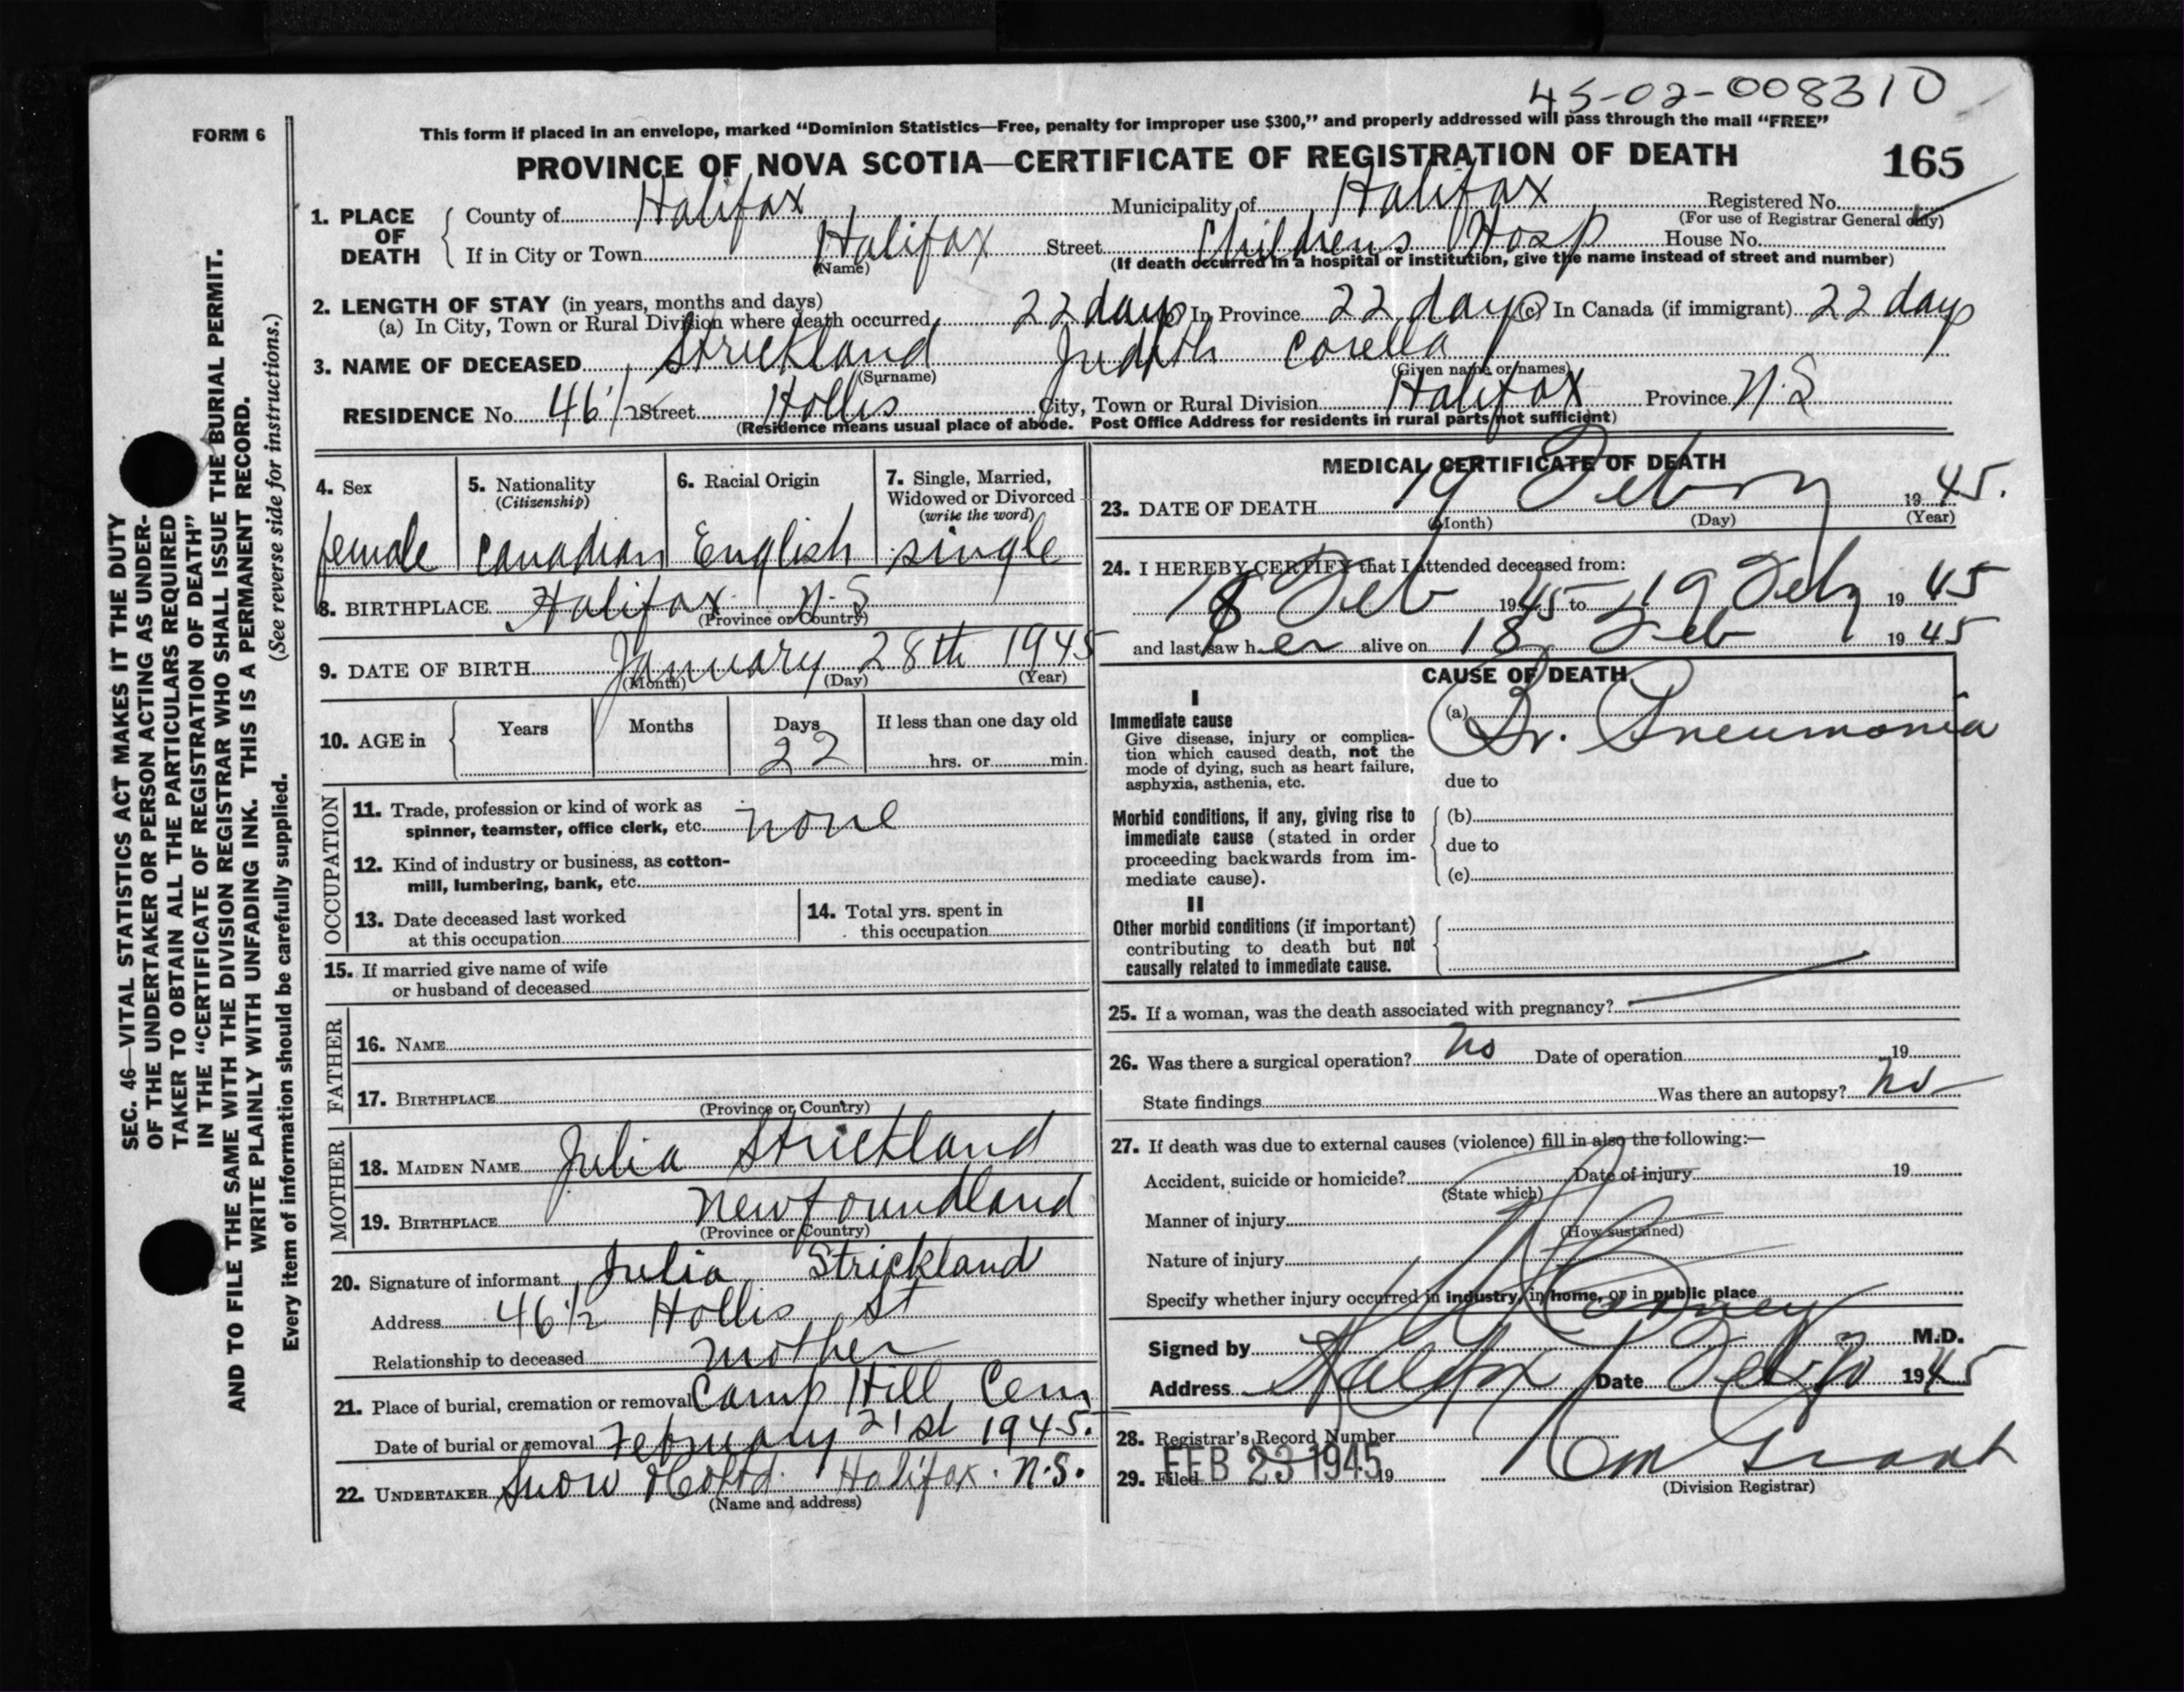 45-02-008310
FORM 6
This form if placed in an envelope, marked “Dominion Statistics—Free, penalty for improper use $300,” and properly addressed will pass through the mail “FREE”
PROVINCE OF NOVA SCOTIA—CERTIFICATE OF REGISTRATION OF DEATH 165
1. PLACE OF DEATH
County of Halifax Municipality of Halifax Registered No.
(For use of Registrar General only)
If in City or Town Halifax Street Childrens Hosp House No.
(Name) (If death occurred in a hospital or institution, give the name instead of street and number)
2. LENGTH OF STAY (in years, months and days)
(a) In City, Town or Rural Division where death occurred 22 days In Province 22 days (c) In Canada (if immigrant) 22 days
3. NAME OF DECEASED Strickland Judith Corella
(Surname) (Given name or names)
RESIDENCE No. 46 1/2 Street Hollis City, Town or Rural Division Halifax Province N.S
(Residence means usual place of abode. Post Office Address for residents in rural parts not sufficient)
4. Sex
female
5. Nationality
(Citizenship)
Canadian
6. Racial Origin
English
7. Single, Married,
Widowed or Divorced
(write the word)
single
8. BIRTHPLACE Halifax N.S
(Province or Country)
9. DATE OF BIRTH January 28th 1945
(Month) (Day) (Year)
10. AGE in Years Months Days If less than one day old
22 hrs. or min.
OCCUPATION
11. Trade, profession or kind of work as
spinner, teamster, office clerk, etc. none
12. Kind of industry or business, as cotton-
mill, lumbering, bank, etc.
13. Date deceased last worked
at this occupation
14. Total yrs. spent in
this occupation
15. If married give name of wife
or husband of deceased
FATHER
16. NAME
17. BIRTHPLACE
(Province or Country)
MOTHER
18. MAIDEN NAME Julia Strickland
19. BIRTHPLACE Newfoundland
(Province or Country)
20. Signature of informant Julia Strickland
Address 46 1/2 Hollis St
Relationship to deceased mother
21. Place of burial, cremation or removal Camp Hill Cem
Date of burial or removal February 21st 1945.
22. UNDERTAKER Snow Halifax. N.S.
(Name and address)
MEDICAL CERTIFICATE OF DEATH
23. DATE OF DEATH 19 1945.
(Month) (Day) (Year)
24. I HEREBY CERTIFY that I attended deceased from:
18 Feb 1945 to 19 Feby 1945
and last saw her alive on 18 Feb 1945
CAUSE OF DEATH
I
Immediate cause
Give disease, injury or complica-
tion which caused death, not the
mode of dying, such as heart failure,
asphyxia, asthenia, etc.
(a) Br. Pneumonia
due to
Morbid conditions, if any, giving rise to
immediate cause (stated in order
proceeding backwards from im-
mediate cause).
(b)
due to
(c)
II
Other morbid conditions (if important)
contributing to death but not
causally related to immediate cause.
25. If a woman, was the death associated with pregnancy?
26. Was there a surgical operation? No Date of operation 19
State findings Was there an autopsy? No
27. If death was due to external causes (violence) fill in also the following:—
Accident, suicide or homicide? Date of injury 19
(State which)
Manner of injury
(How sustained)
Nature of injury
Specify whether injury occurred in industry, in home, or in public place
Signed by M.D.
Address Halifax Date Feb 20 1945
28. Registrar's Record Number
29. Filed FEB 23 1945 19
(Division Registrar)
SEC. 46—VITAL STATISTICS ACT MAKES IT THE DUTY
OF THE UNDERTAKER OR PERSON ACTING AS UNDER-
TAKER TO OBTAIN ALL THE PARTICULARS REQUIRED
IN THE “CERTIFICATE OF REGISTRATION OF DEATH”
AND TO FILE THE SAME WITH THE DIVISION REGISTRAR WHO SHALL ISSUE THE BURIAL PERMIT.
WRITE PLAINLY WITH UNFADING INK. THIS IS A PERMANENT RECORD.
(See reverse side for instructions.)
Every item of information should be carefully supplied.